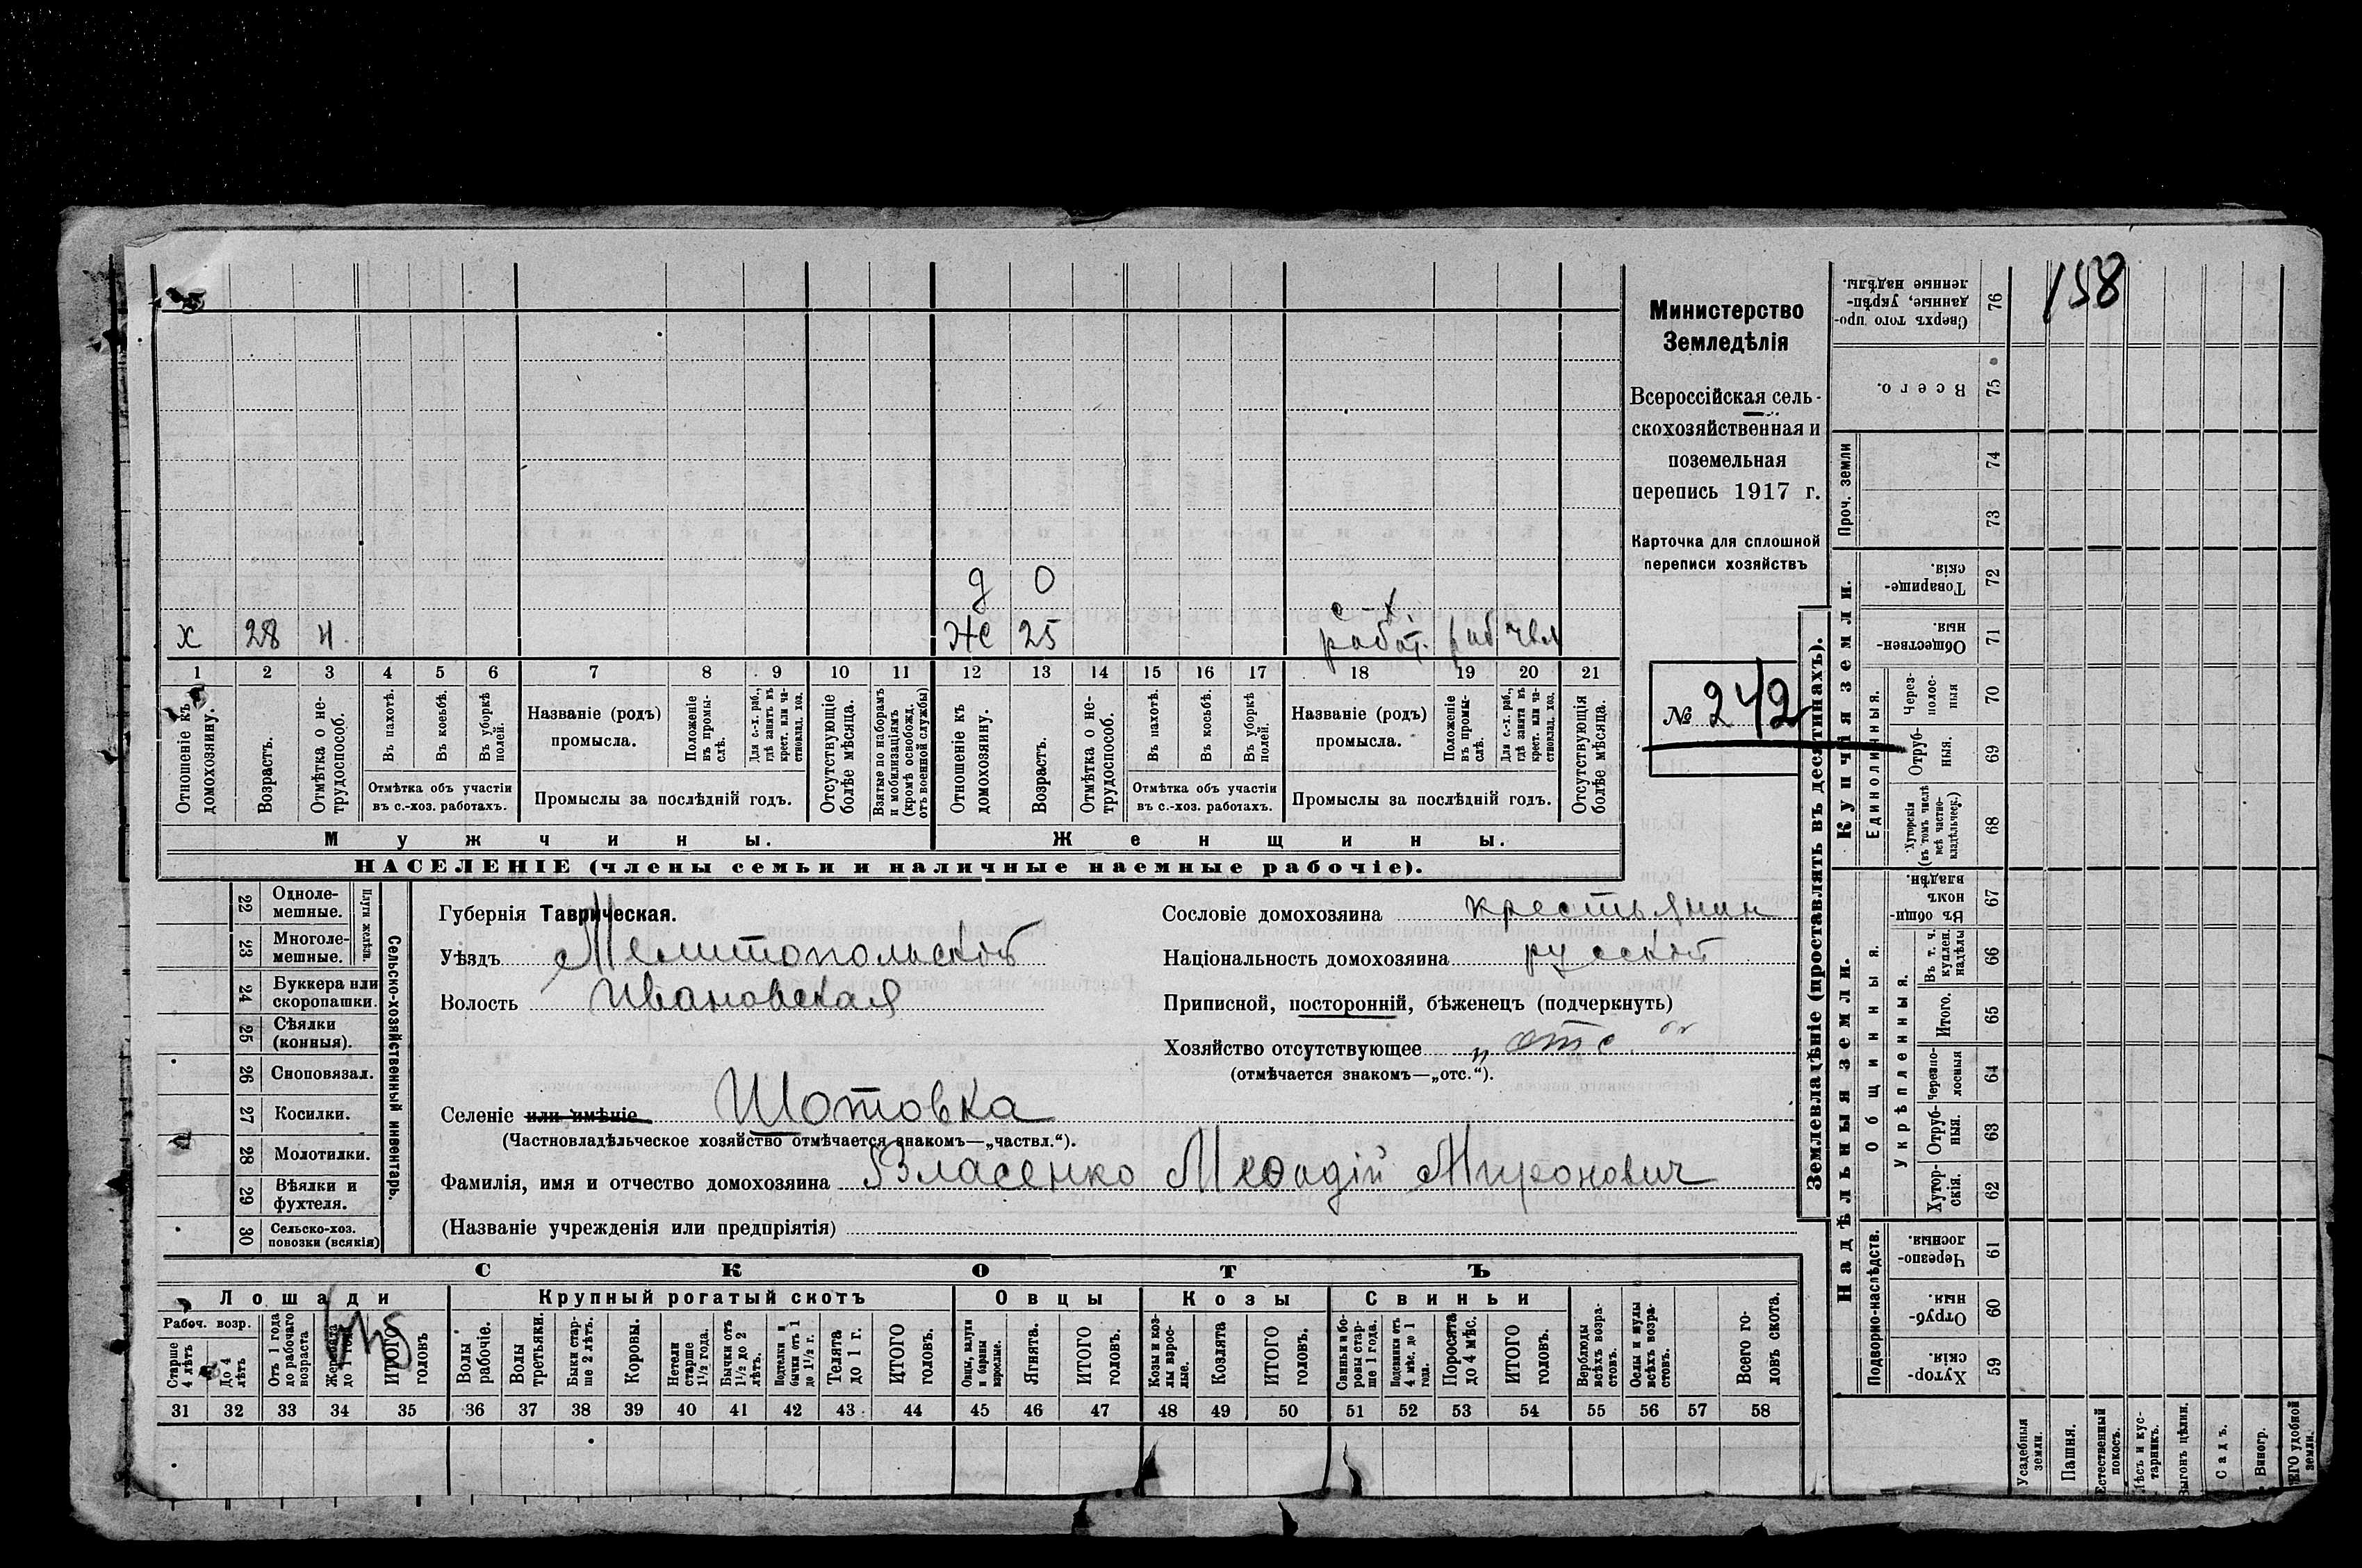 158
Министерство
Земледѣлія
Всероссійская сель-
скохозяйственная и
поземельная
перепись 1917 г.
Карточка для сплошной
переписи хозяйствъ
№ 242
д 0
с-х.
х 28 н. же 25 работ. раб
1 2 3 4 5 6 7 8 9 10 11 12 13 14 15 16 17 18 19 20 21
Отношеніе къ домохозяину.
Возрастъ.
Отмѣтка о не-трудоспособ.
Въ пахотѣ.
Въ косьбѣ.
Въ уборкѣ полей.
Отмѣтка объ участіи
въ с.-хоз. работахъ.
Названіе (родъ)
промысла.
Положеніе въ промы-слѣ.
Для с.-х. раб., гдѣ занятъ въ крест. или ча-стновлад. хоз.
Промыслы за послѣдній годъ.
Отсутствующіе болѣе мѣсяца.
Взятые по наборамъ и мобилизаціямъ (кромѣ освобожд. отъ военной службы)
Отношеніе къ домохозяину.
Возрастъ.
Отмѣтка о не-трудоспособ.
Въ пахотѣ.
Въ косьбѣ.
Въ уборкѣ полей.
Отмѣтка объ участіи
въ с.-хоз. работахъ.
Названіе (родъ)
промысла.
Положеніе въ промы-слѣ.
Для с.-х. раб., гдѣ занята въ крест. или ча-стновлад. хоз.
Промыслы за послѣдній годъ.
Отсутствующія болѣе мѣсяца.
Мужчины. Женщины.
НАСЕЛЕНІЕ (члены семьи и наличные наемные рабочіе).
Сельско-хозяйственный инвентарь.
Плуги желѣз.
22 Одноле-мешные.
23 Многоле-мешные.
24 Буккера или скоропашки.
25 Сѣялки (конныя).
26 Сноповязал.
27 Косилки.
28 Молотилки.
29 Вѣялки и фухтеля.
30 Сельско-хоз. повозки (всякія)
Губернія Таврическая.
Уѣздъ Мелитопольскій
Волость Ивановская
Сословіе домохозяина крестьянин
Національность домохозяина русский
Приписной, посторонній, бѣженецъ (подчеркнуть)
Хозяйство отсутствующее „отс.“
(отмѣчается знакомъ—„отс.“).
Селеніе или имѣніе Шотовка
(Частновладѣльческое хозяйство отмѣчается знакомъ—„частвл.“).
Фамилія, имя и отчество домохозяина Власенко Меѳодій Миронович
(Названіе учрежденія или предпріятія)
СКОТЪ
Лошади Крупный рогатый скотъ Овцы Козы Свиньи
Рабоч. возр.
Старше 4 лѣтъ
До 4 лѣтъ
Отъ 1 года до рабочаго возраста
Жеребята до 1 года
ИТОГО головъ
Волы рабочіе.
Волы третьяки.
Быки стар-ше 2 лѣтъ.
Коровы.
Нетели старше 1½ года.
Бычки отъ 1½ до 2 лѣтъ.
Подтелки и бычки отъ 1 до 1½ г.
Телята до 1 г.
ИТОГО головъ.
Овцы, валухи и бараны взрослые.
Ягнята.
ИТОГО головъ.
Козы и коз-лы взрос-лые.
Козлята
ИТОГО головъ.
Свиньи и бо-ровы стар-ше 1 года.
Подсвинки отъ 4 мѣс. до 1 года.
Поросята до 4 мѣс.
ИТОГО головъ.
Верблюды всѣхъ возра-стовъ.
Ослы и мулы всѣхъ возра-стовъ.
Всего го-ловъ скота.
31 32 33 34 35 36 37 38 39 40 41 42 43 44 45 46 47 48 49 50 51 52 53 54 55 56 57 58
Землевладѣніе (проставлять въ десятинахъ).
Купчія земли.
Надѣльныя земли.
Проч. земли
Единоличныя.
Общинныя.
Укрѣпленныя.
Подворно-наслѣдств.
76 Сверхъ того про-данные, укрѣп-ленные надѣлы.
75 Всего.
74
73
72 Товарище-скія.
71 Обществен-ныя
70 Через-полос-ныя
69 Отруб-ныя.
68 Хуторскія (въ томъ числѣ всѣ частно-владѣльческ.)
67 Въ общин-номъ владѣн.
66 Въ т. ч. куплен. надѣлы
65 Итого.
64 Черезпо-лосныя
63 Отруб-ныя.
62 Хутор-скія.
61 Черезпо-лосныя.
60 Отруб-ныя.
59 Хутор-скія
Усадебныя земли.
Пашня.
Естественный покосъ.
Лѣсъ и кус-тарникъ.
Выгонъ цѣлин.
Садъ.
Виногр.
ЕГО удобной земли.